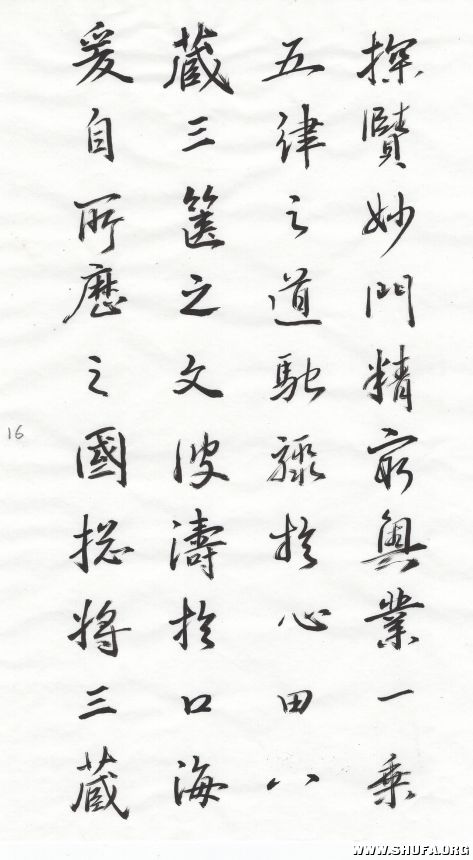 探賾妙門精窮奧業一乘
五律之道馳驟於心田八
藏三篋之文波濤於口海
爰自所歷之國總將三藏
16
WWW.SHUFA.ORG